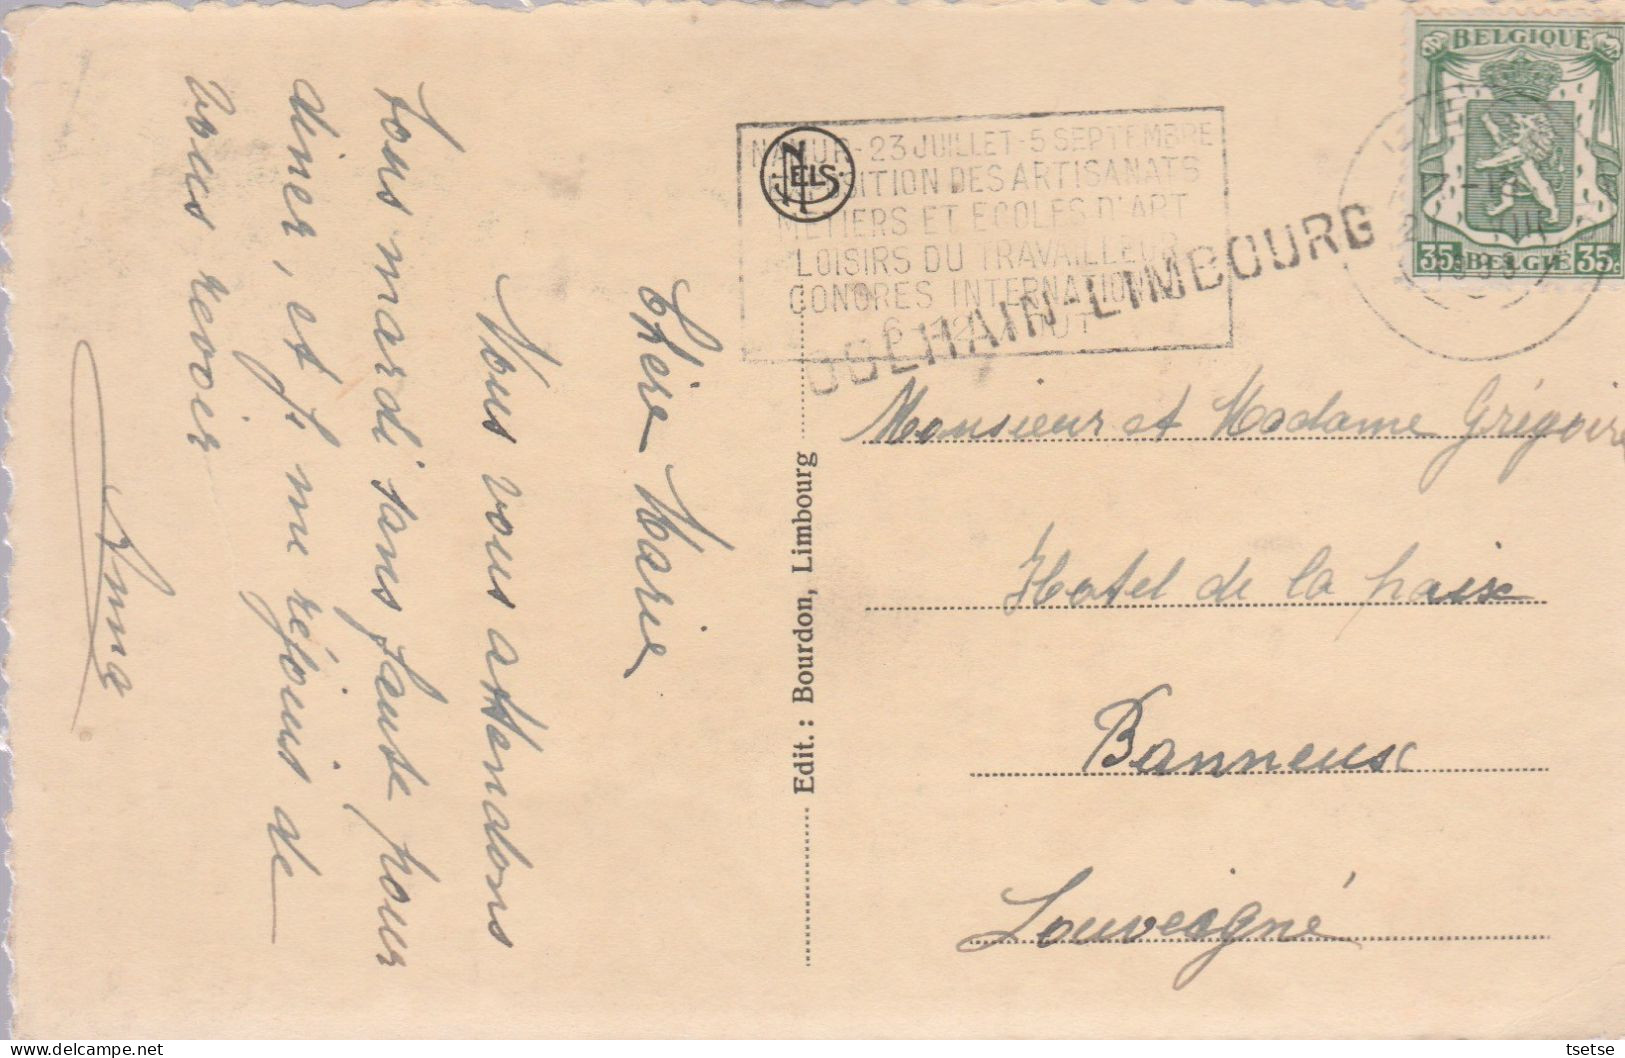 Chère Marie
Nous vous attendons
tous mardi sans faute pour
dîner, et j, me réjouis de
vous revoir
Anna
NELS
Edit. : Bourdon, Limbourg
NAMUR-23 JUILLET-5 SEPTEMBRE
EXPOSITION DES ARTISANATS
METIERS ET ECOLES D'ART
LOISIRS DU TRAVAILLEUR
CONGRES INTERNATIONAL
AOUT
DOLHAIN-LIMBOURG
BELGIQUE
35c BELGIË 35c
Monsieur et Madame Grégoire
Hotel de la paix
Banneux
Louveigné
tsetse